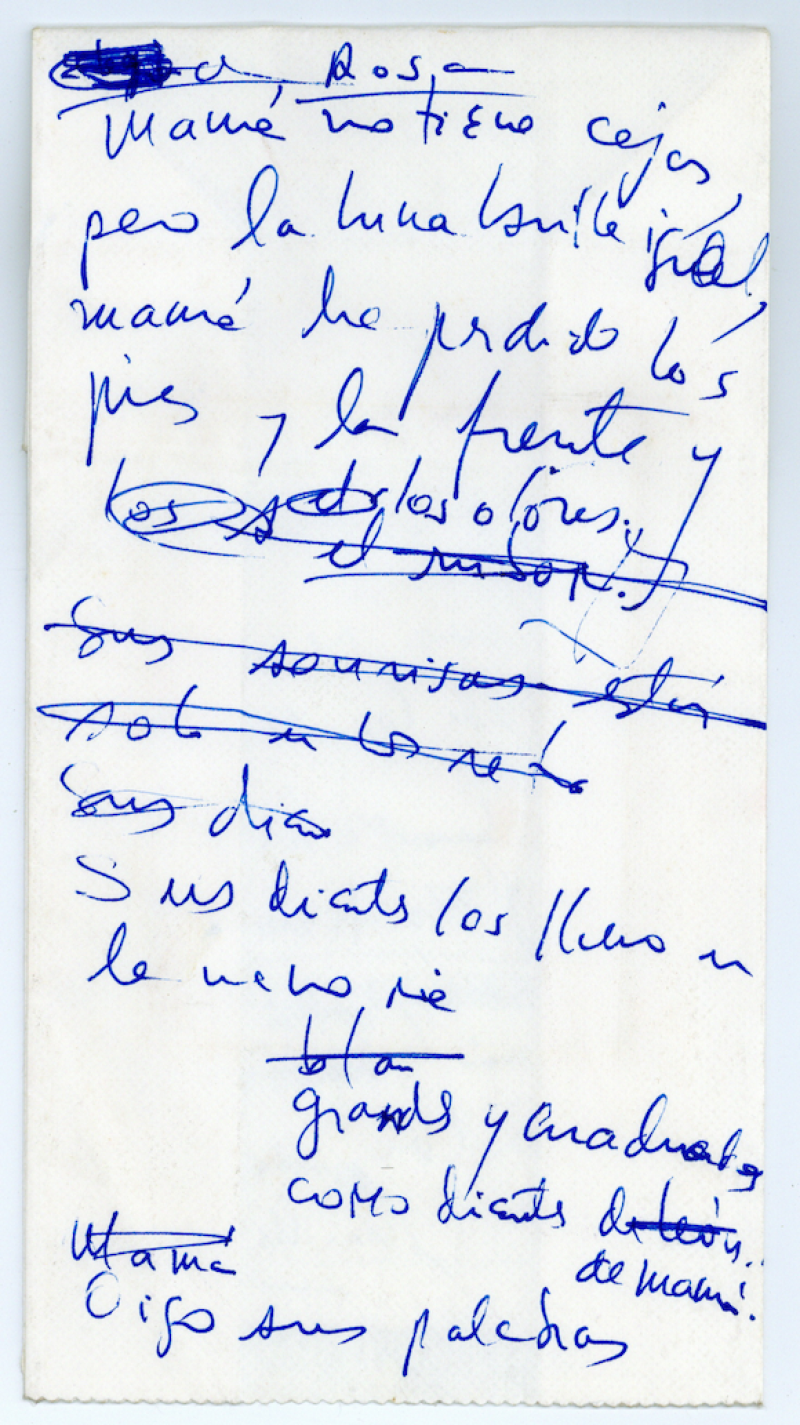 a Rosa
Mamá no tiene cejas,
pero la luna brilla igual,
mamá ha perdido los
pies y la frente y
los los olores.
el
Sus sonrisas están
solo en los
Sus dias
Sus dientes los llevo en
la memoria
blan
grandes y cuadrados
como dientes de león.
de mamá.
Mamá
Oigo sus palabras